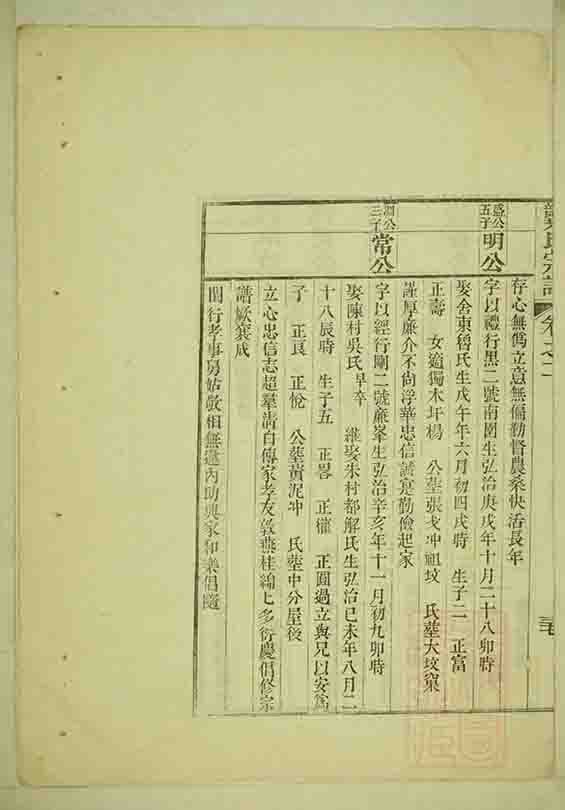 氏宗譜 卷之二
存心無僞立意無偏勤督農桑快活長年
盛公五子
明公
字以禮行黑二號南園生弘治庚戌年十月二十八卯時
娶舍東魯氏生戊午年六月初四戌時 生子二 正富
正壽 女適獨木圩楊 公塟張戈冲祖坟 氏塟大坟窠
謹厚廉介不尚浮華忠信誠寔勤儉起家
公三子
常公
字以經行剛二號廉峯生弘治辛亥年十一月初九卯時
娶陳村吳氏早卒 維娶朱村都解氏生弘治已未年八月二
十八辰時 生子五 正畧 正權 正圓過立與兄以安爲
子 正艮 正悅 公塟黃泥冲 氏塟中分屋後
立心忠信志超羣清白傳家孝友敦燕桂綿七多衍慶倡修宗
譜厥裒成
閨行孝事舅姑敬相無違內助興家和樂倡隨